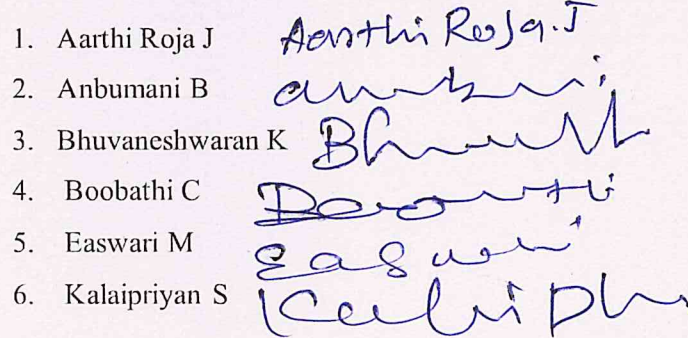 1. Aarthi Roja J Aarthi Roja.J
2. Anbumani B
3. Bhuvaneshwaran K
4. Boobathi C
5. Easwari M Easwari
6. Kalaipriyan S